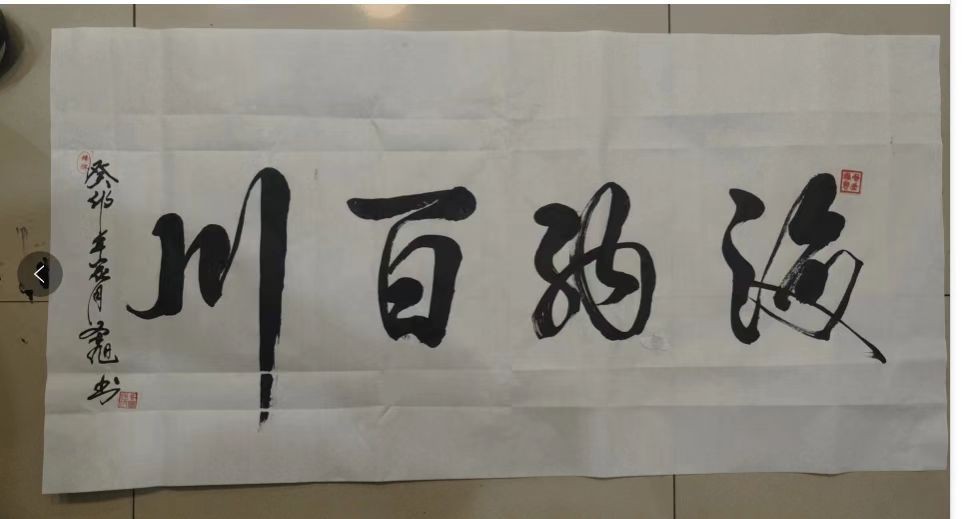 海纳百川
癸卯年 月 旭书